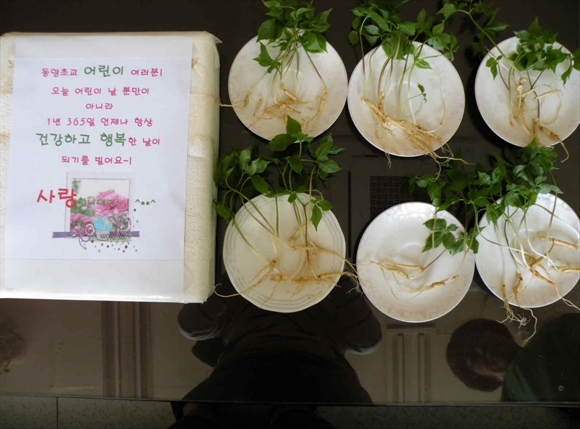 동명초교 어린이 여러분!
오늘 어린이 날 뿐만이
아니라
1년 365일 언제나 항상
건강하고 행복한 날이
되기를 빌어요~!
사랑합니데이 ^**^